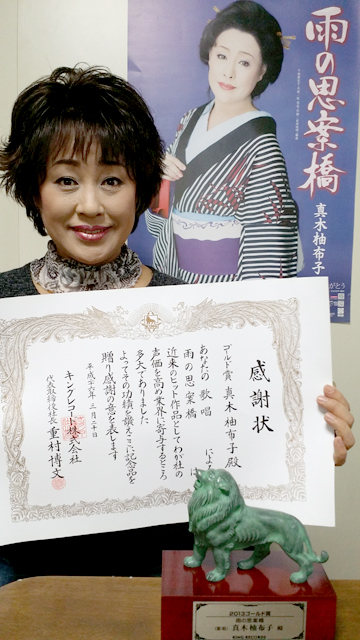 雨の思案橋
真木柚布子
感謝状
ゴールド賞 真木柚布子殿
あなたの歌唱
雨の思案橋
近来のヒット作品としてわが社の
声価を高め業界に寄与するところ
多大でありました
よってその功績を讃えここに記念品を
贈り感謝の意を表します
平成二十六年 三月二十日
キングレコード株式会社
代表取締役社長 重村博文
2013ゴールド賞
雨の思案橋
(歌唱) 真木柚布子 殿
KING RECORDS